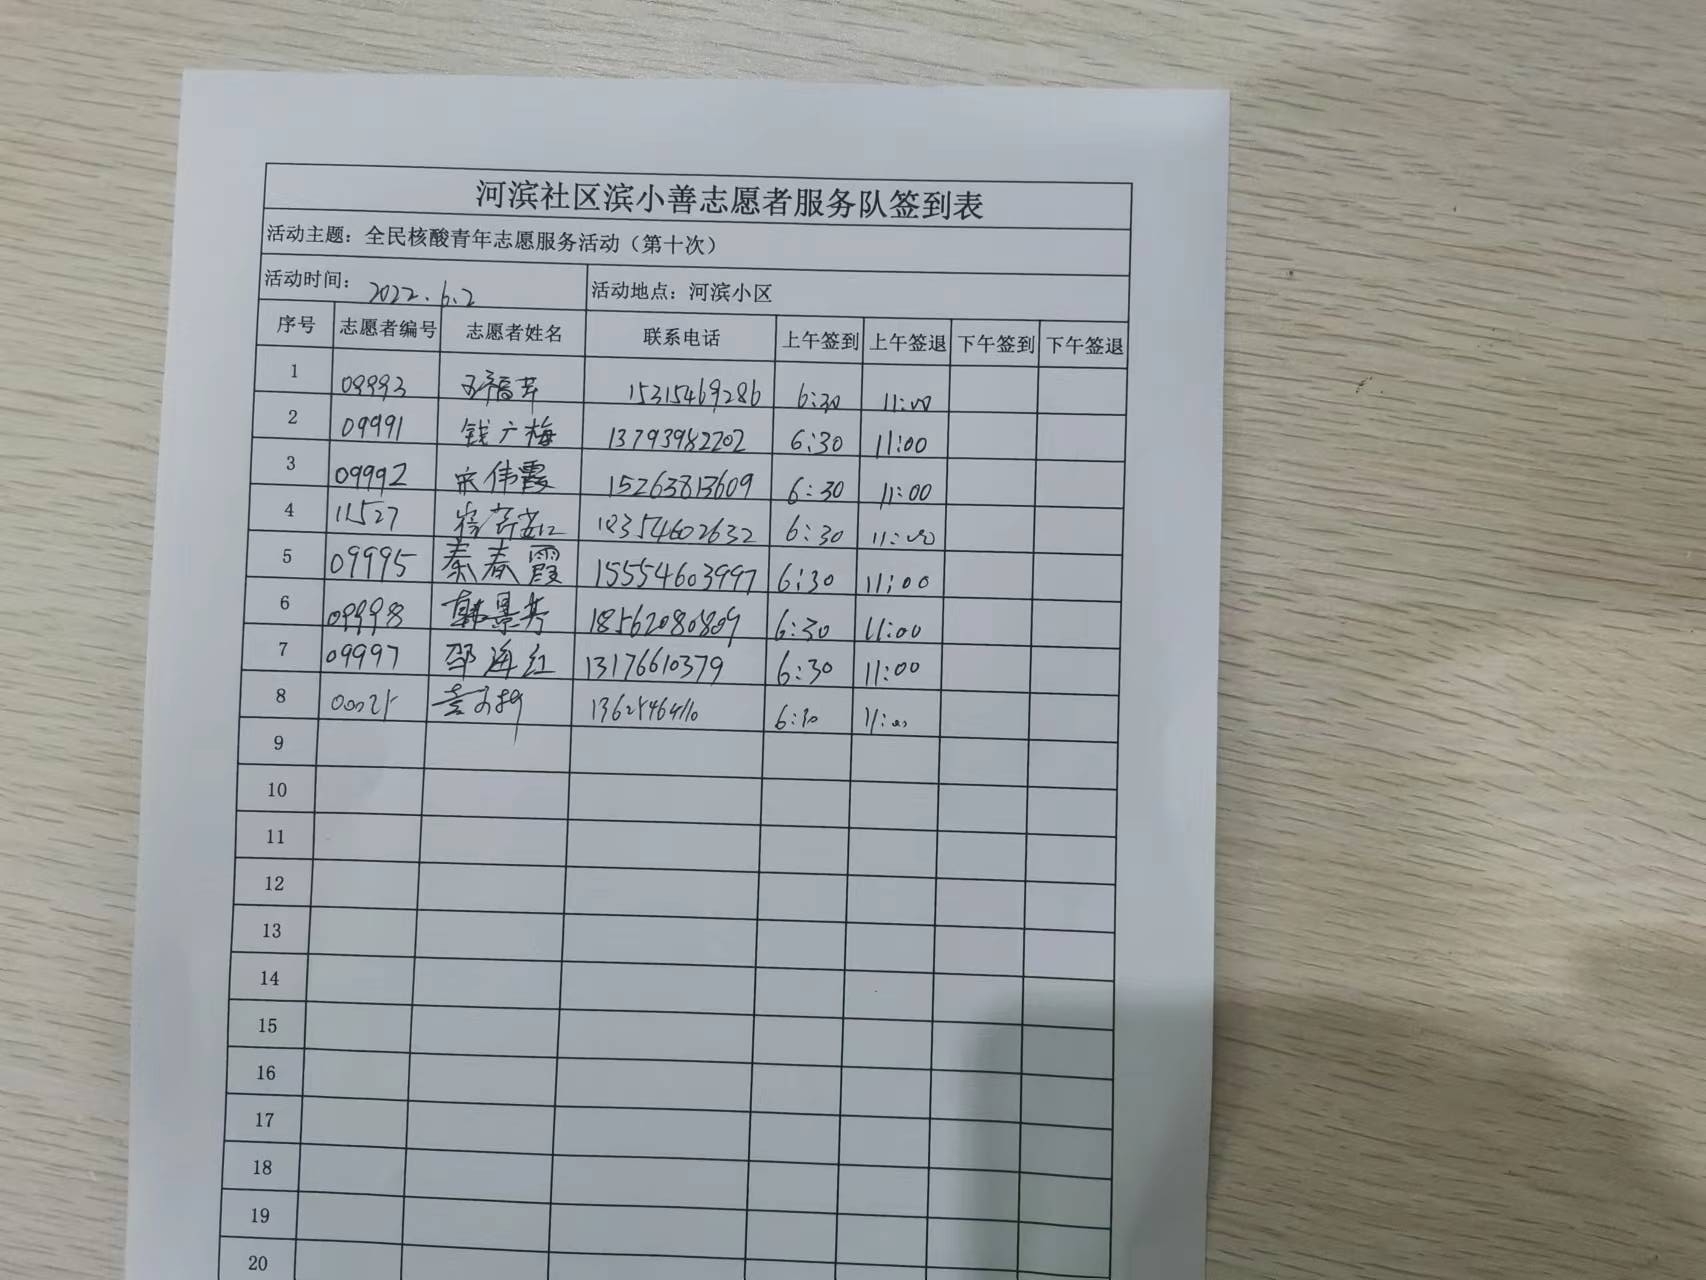 河滨社区滨小善志愿者服务队签到表
活动主题：全民核酸青年志愿服务活动（第十次）
活动时间：2022.6.2 活动地点：河滨小区
序号 志愿者编号 志愿者姓名 联系电话 上午签到 上午签退 下午签到 下午签退
1 09993 15315469286 6:30 11:00
2 09991 钱广梅 13793982202 6:30 11:00
3 09992 宋伟霞 15263813609 6:30 11:00
4 11527 6:30 11:00
5 09995 秦春霞 15554603997 6:30 11:00
6 09998 韩景芳 18562080809 6:30 11:00
7 09997 邵海红 13176610379 6:30 11:00
8 6:30 11:00
9
10
11
12
13
14
15
16
17
18
19
20